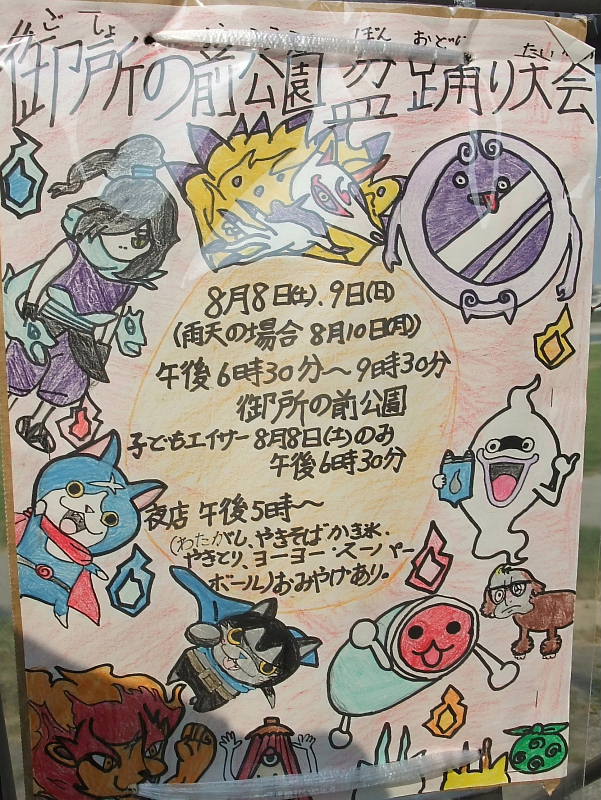 ごしょ ぼん おどり たい
御所の前公園 盆踊り大会
8月8日(土)、9日(日)
(雨天の場合 8月10日(月))
午後6時30分〜9時30分
御所の前公園
子どもエイサー 8月8日(土)のみ
午後6時30分
夜店 午後5時〜
(わたがし、やきそば かき氷.
やきとり、ヨーヨー・スーパー
ボール)おみやげあり。